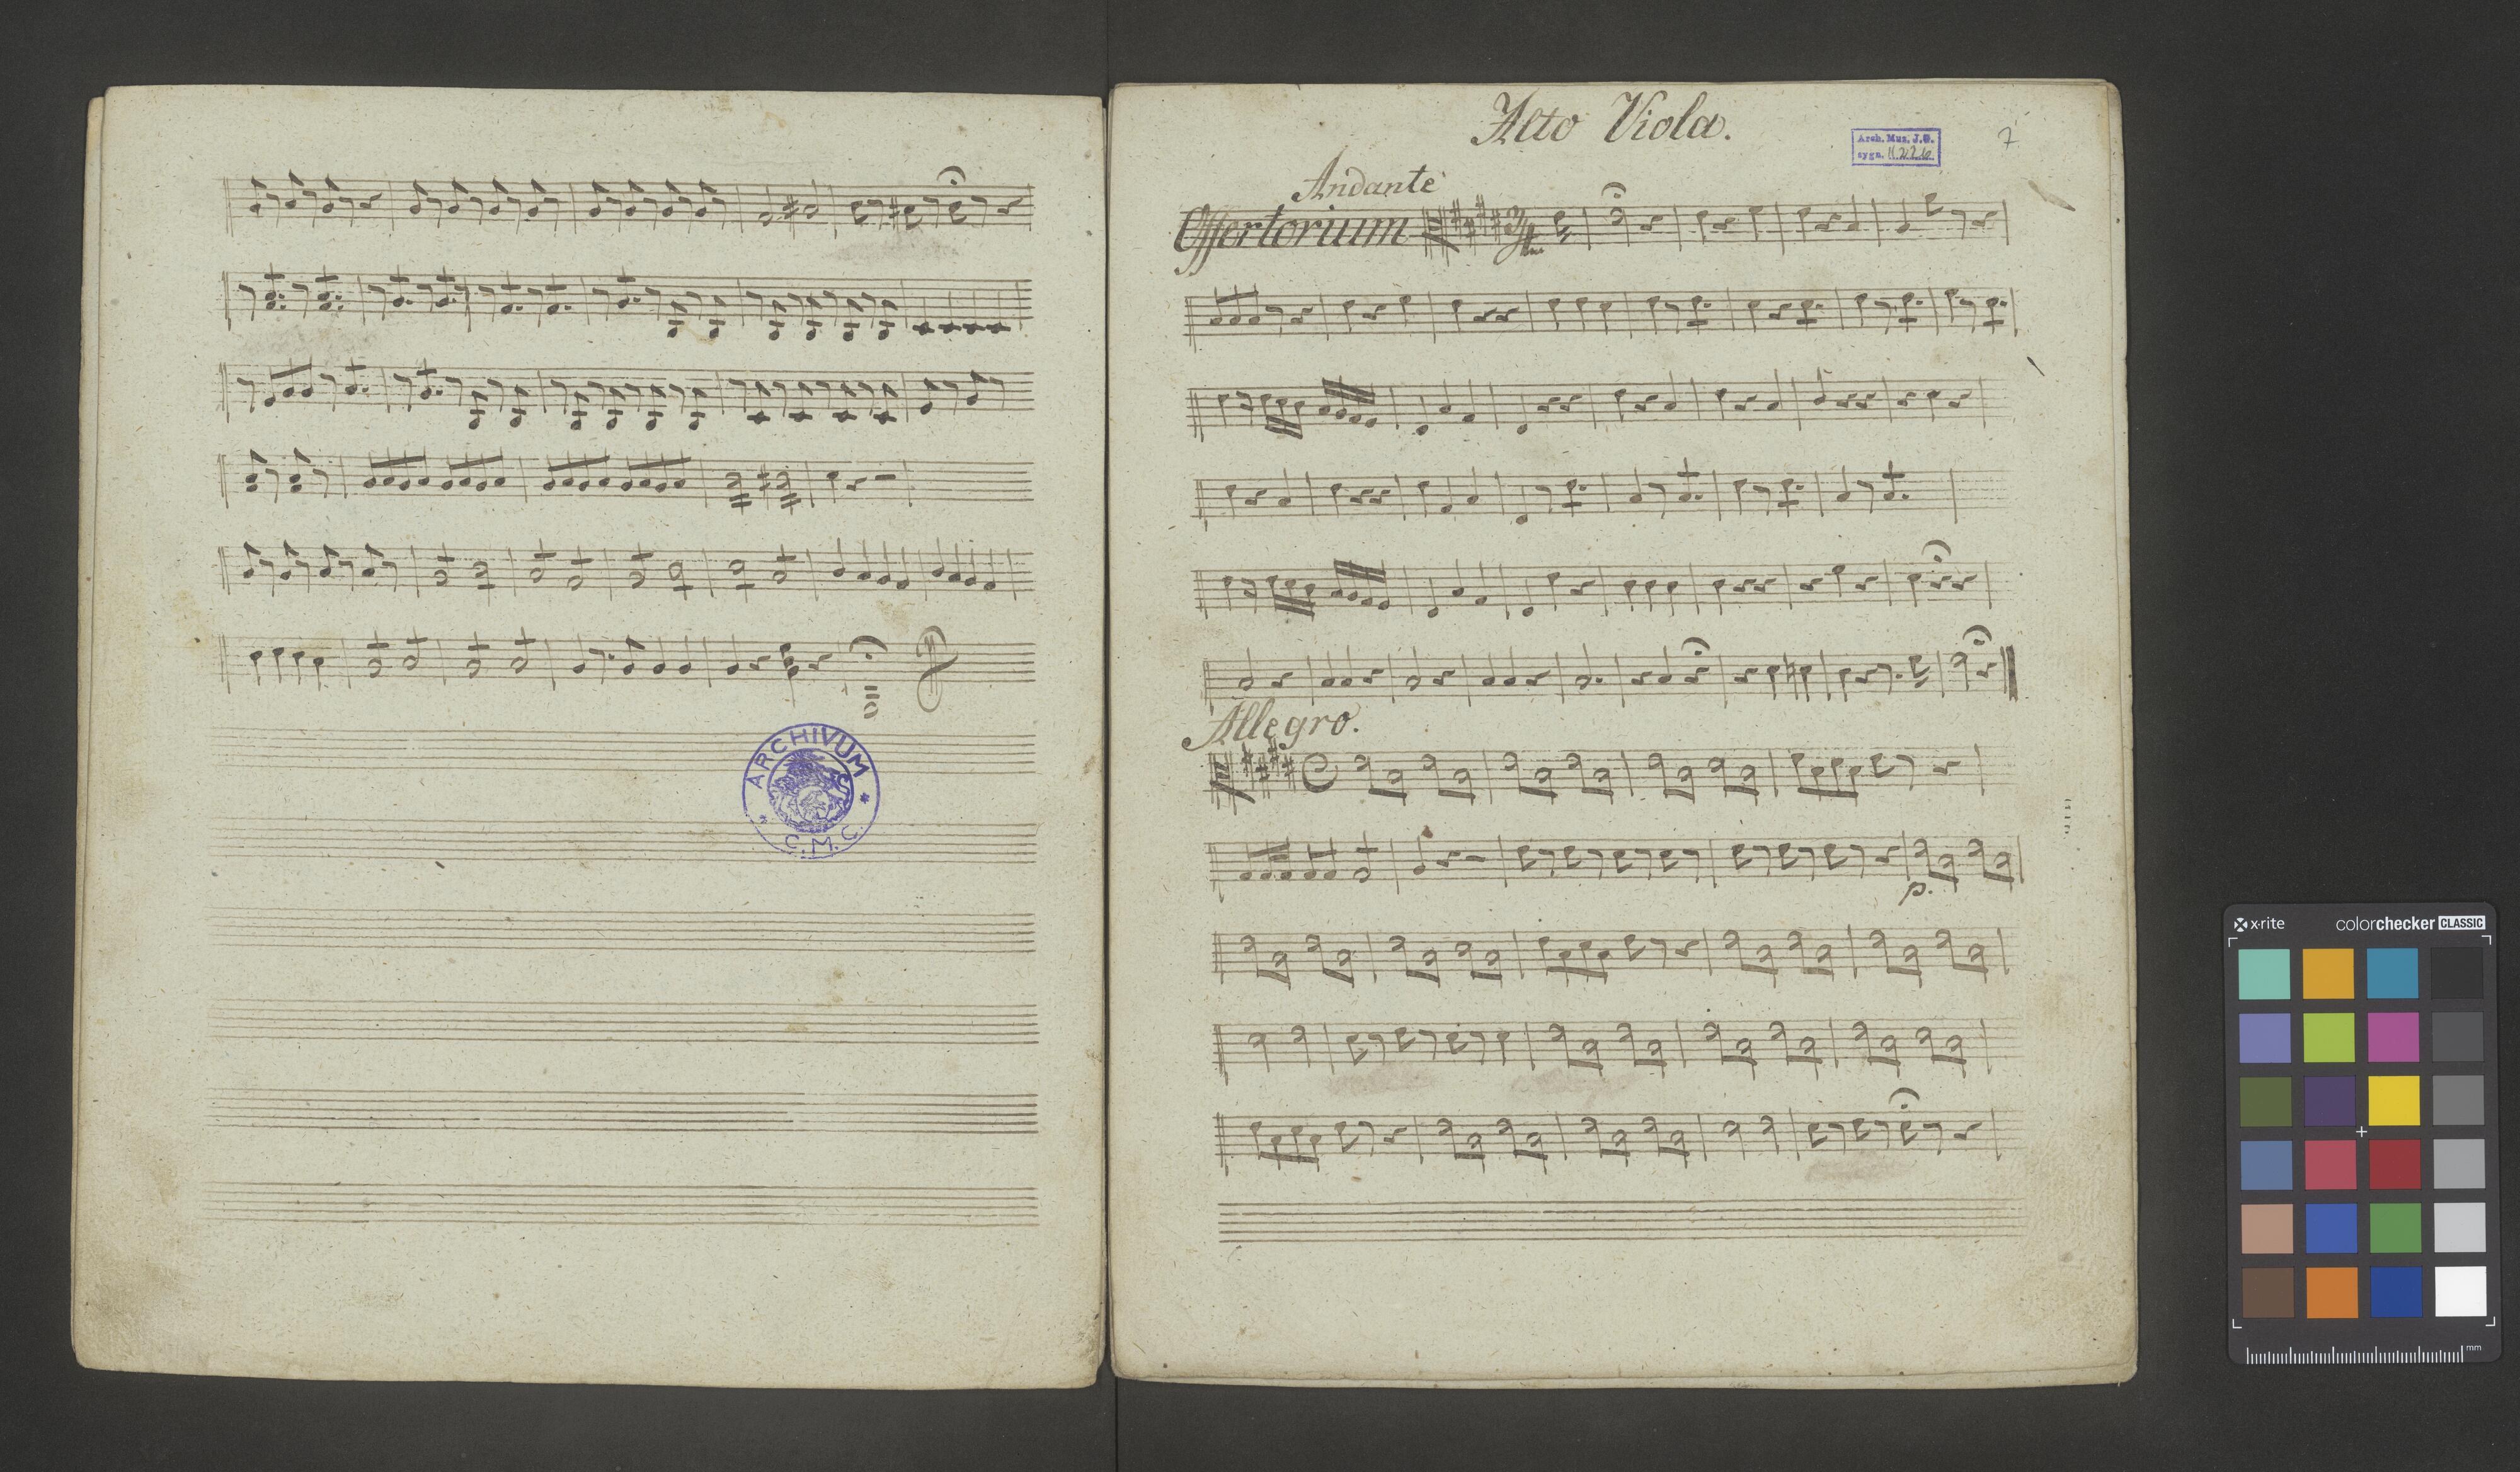 ARCHIVUM
C.M.C.
Alto Viola.
Arch. Muz. J.G.
sygn.
7
Andante
Offertorium
Allegro.
p.
x-rite
colorchecker CLASSIC
mm